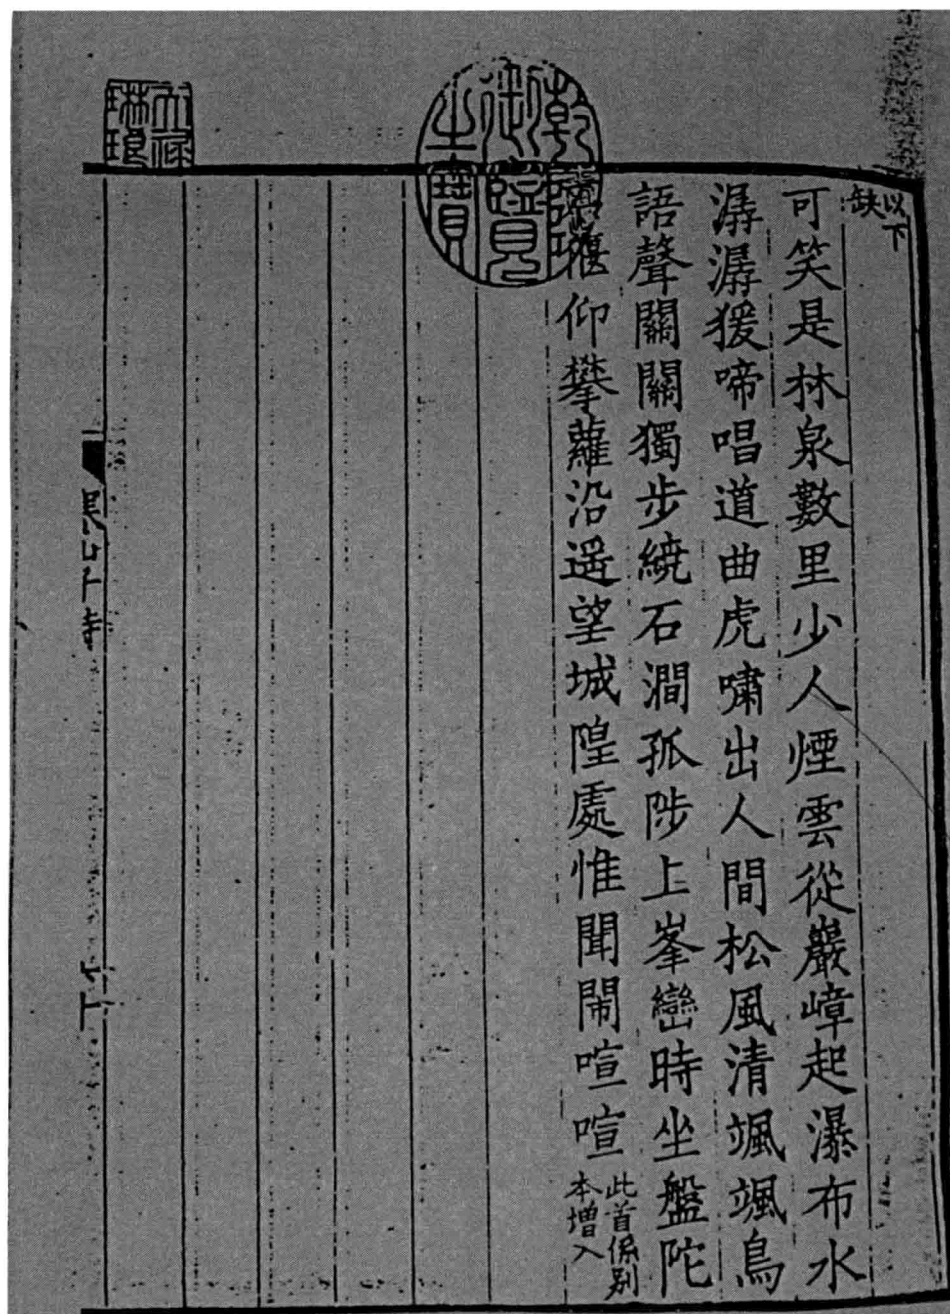 以下
缺
可笑是林泉數里少人煙雲從巖嶂起瀑布水
潺潺猨啼唱道曲虎嘯出人間松風清颯颯鳥
語聲關關獨步繞石澗孤陟上峯巒時坐盤陀
偃仰攀蘿沿遥望城隍處惟聞鬧喧喧
此首係别
本増入
乾隆
御覽
之寶
天祿
琳琅
寒山子詩